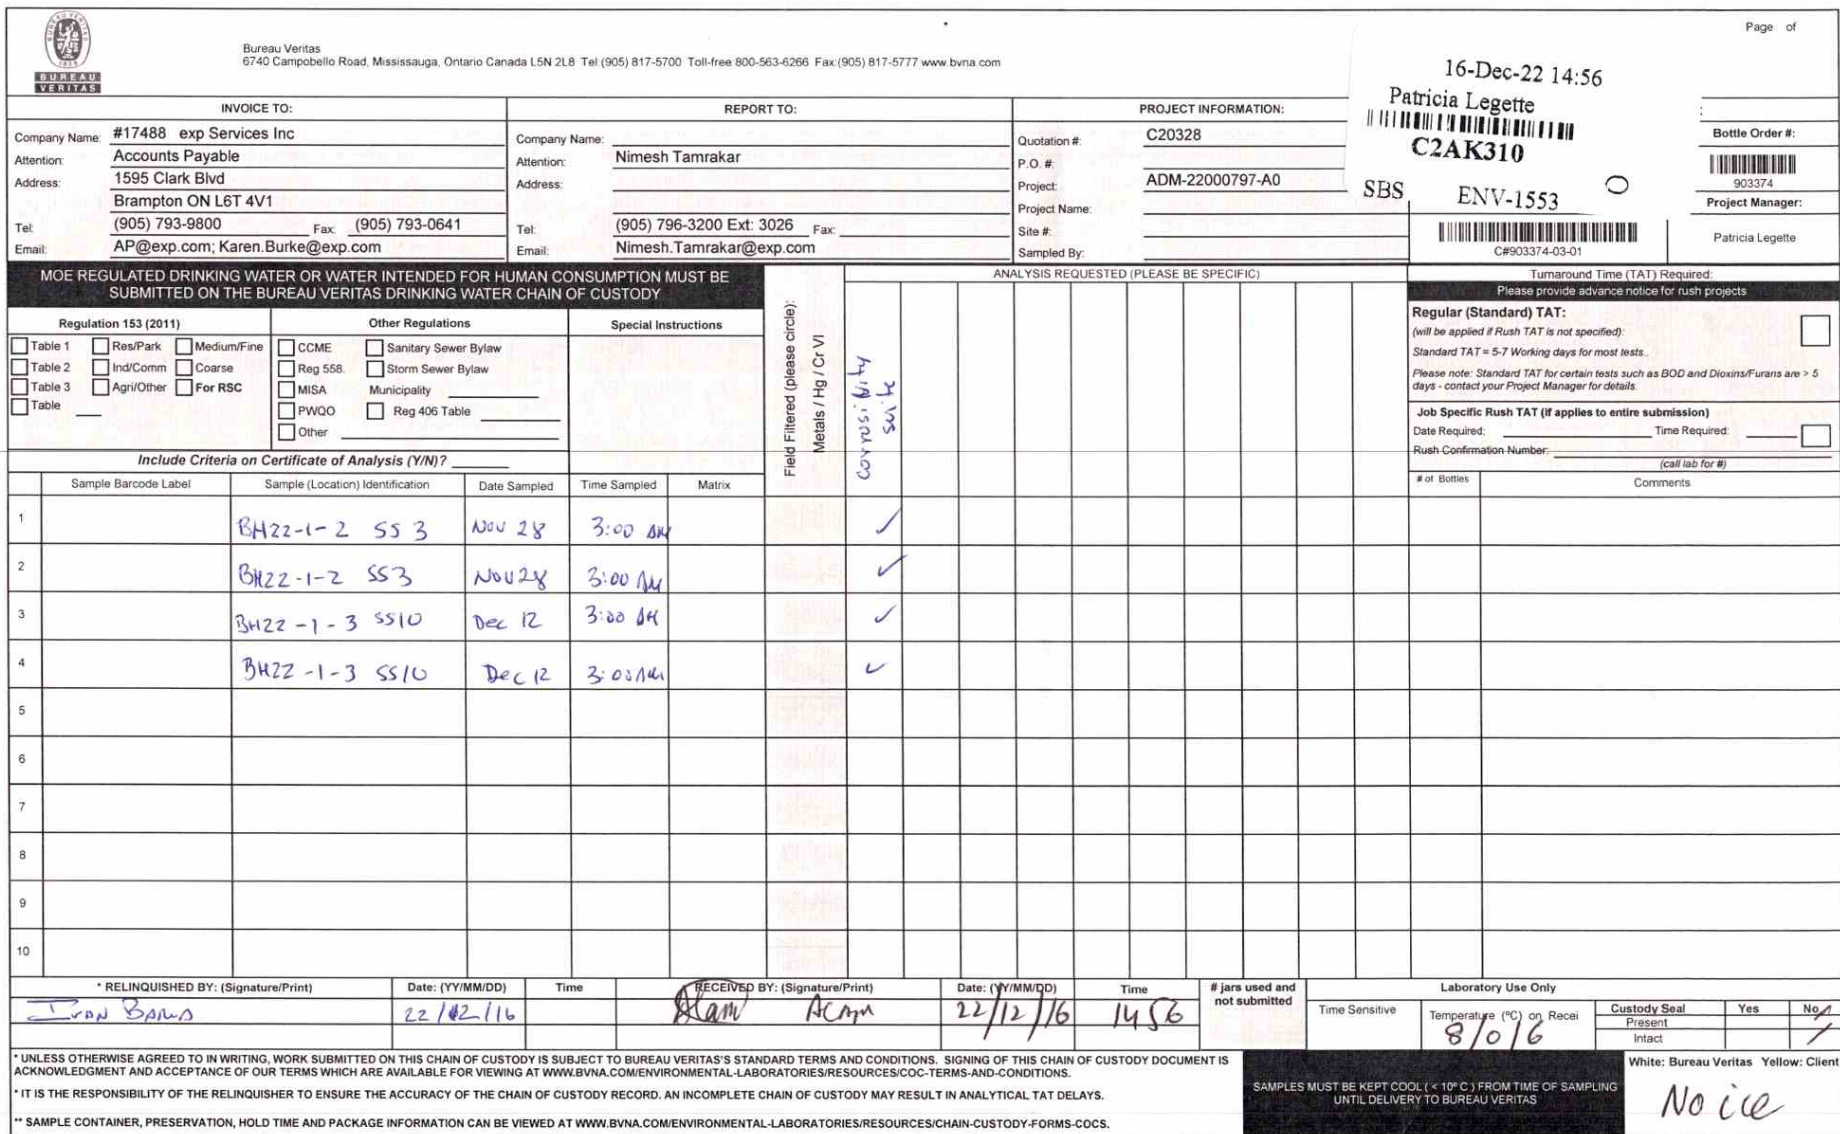 Page of
BUREAU VERITAS
Bureau Veritas
6740 Campobello Road, Mississauga, Ontario Canada L5N 2L8 Tel:(905) 817-5700 Toll-free 800-563-6266 Fax:(905) 817-5777 www.bvna.com
16-Dec-22 14:56
Patricia Legette
C2AK310
SBS ENV-1553
INVOICE TO:
Company Name: #17488 exp Services Inc
Attention: Accounts Payable
Address: 1595 Clark Blvd
Brampton ON L6T 4V1
Tel: (905) 793-9800 Fax: (905) 793-0641
Email: AP@exp.com; Karen.Burke@exp.com
REPORT TO:
Company Name:
Attention: Nimesh Tamrakar
Address:
Tel: (905) 796-3200 Ext: 3026 Fax:
Email: Nimesh.Tamrakar@exp.com
PROJECT INFORMATION:
Quotation #: C20328
P.O. #:
Project: ADM-22000797-A0
Project Name:
Site #:
Sampled By:
Bottle Order #:
903374
Project Manager:
C#903374-03-01
Patricia Legette
MOE REGULATED DRINKING WATER OR WATER INTENDED FOR HUMAN CONSUMPTION MUST BE
SUBMITTED ON THE BUREAU VERITAS DRINKING WATER CHAIN OF CUSTODY
Regulation 153 (2011)
Table 1 Res/Park Medium/Fine
Table 2 Ind/Comm Coarse
Table 3 Agri/Other For RSC
Table
Other Regulations
CCME Sanitary Sewer Bylaw
Reg 558. Storm Sewer Bylaw
MISA Municipality
PWQO Reg 406 Table
Other
Special Instructions
Include Criteria on Certificate of Analysis (Y/N)?
Field Filtered (please circle):
Metals / Hg / Cr VI
ANALYSIS REQUESTED (PLEASE BE SPECIFIC)
corrosivity
Turnaround Time (TAT) Required:
Please provide advance notice for rush projects
Regular (Standard) TAT:
(will be applied if Rush TAT is not specified):
Standard TAT = 5-7 Working days for most tests..
Please note: Standard TAT for certain tests such as BOD and Dioxins/Furans are > 5
days - contact your Project Manager for details.
Job Specific Rush TAT (if applies to entire submission)
Date Required: Time Required:
Rush Confirmation Number:
(call lab for #)
Sample Barcode Label Sample (Location) Identification Date Sampled Time Sampled Matrix # of Bottles Comments
1 BH22-1-2 SS 3 Nov 28 3:00 AM ✓
2 BH22-1-2 SS3 Nov 28 3:00 AM ✓
3 BH22-1-3 SS10 Dec 12 3:00 AM ✓
4 BH22-1-3 SS10 Dec 12 3:00 AM ✓
5
6
7
8
9
10
* RELINQUISHED BY: (Signature/Print) Date: (YY/MM/DD) Time RECEIVED BY: (Signature/Print) Date: (YY/MM/DD) Time
22/12/16 22/12/16 1456
# jars used and
not submitted
Laboratory Use Only
Time Sensitive
Temperature (°C) on Recei
8/0/6
Custody Seal Yes No
Present
Intact
* UNLESS OTHERWISE AGREED TO IN WRITING, WORK SUBMITTED ON THIS CHAIN OF CUSTODY IS SUBJECT TO BUREAU VERITAS'S STANDARD TERMS AND CONDITIONS. SIGNING OF THIS CHAIN OF CUSTODY DOCUMENT IS
ACKNOWLEDGMENT AND ACCEPTANCE OF OUR TERMS WHICH ARE AVAILABLE FOR VIEWING AT WWW.BVNA.COM/ENVIRONMENTAL-LABORATORIES/RESOURCES/COC-TERMS-AND-CONDITIONS.
* IT IS THE RESPONSIBILITY OF THE RELINQUISHER TO ENSURE THE ACCURACY OF THE CHAIN OF CUSTODY RECORD. AN INCOMPLETE CHAIN OF CUSTODY MAY RESULT IN ANALYTICAL TAT DELAYS.
** SAMPLE CONTAINER, PRESERVATION, HOLD TIME AND PACKAGE INFORMATION CAN BE VIEWED AT WWW.BVNA.COM/ENVIRONMENTAL-LABORATORIES/RESOURCES/CHAIN-CUSTODY-FORMS-COCS.
SAMPLES MUST BE KEPT COOL ( < 10° C ) FROM TIME OF SAMPLING
UNTIL DELIVERY TO BUREAU VERITAS
White: Bureau Veritas Yellow: Client
No ice